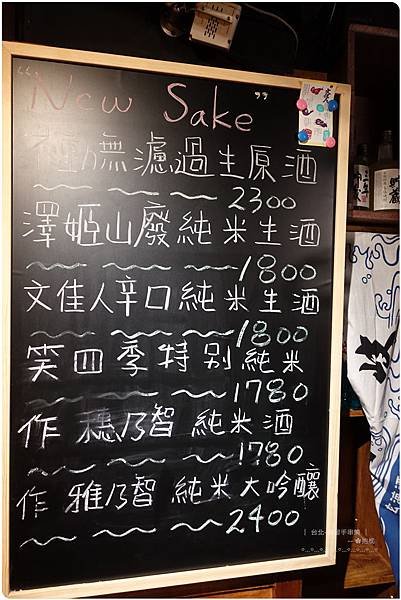 "New Sake"
無濾過生原酒
2300
澤姬山廢純米生酒
1800
文佳人辛口純米生酒
1800
笑四季特別純米
1780
作 穗乃智 純米酒
1780
作 雅乃智 純米大吟釀
2400